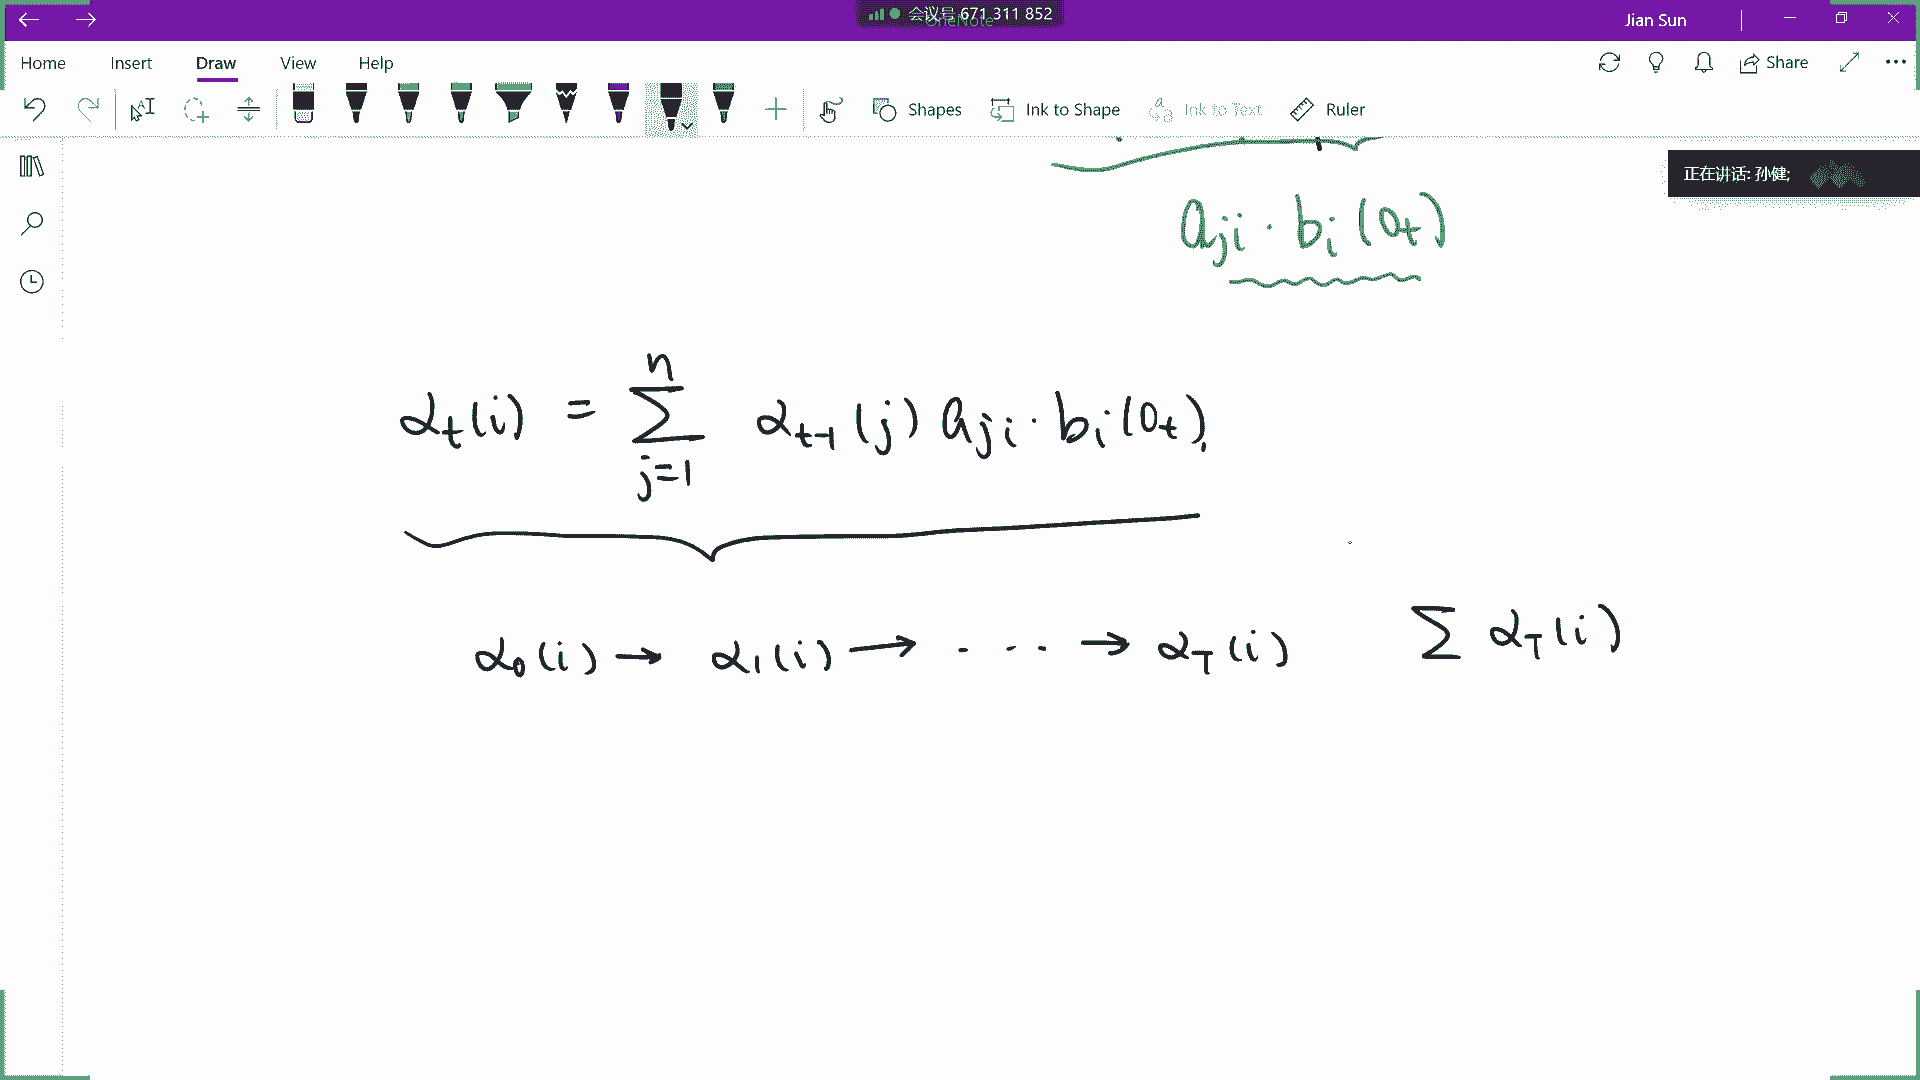 会议号 671 311 852
OneNote
Jian Sun
Home Insert Draw View Help Share
Shapes Ink to Shape Ink to Text Ruler
正在讲话: 孙健;
aji · bi (Ot)
n
αt(i) = Σ αt-1 (j) aji · bi (Ot),
j=1
α0(i) → α1(i) → · · · · → αT(i) Σ αT(i)